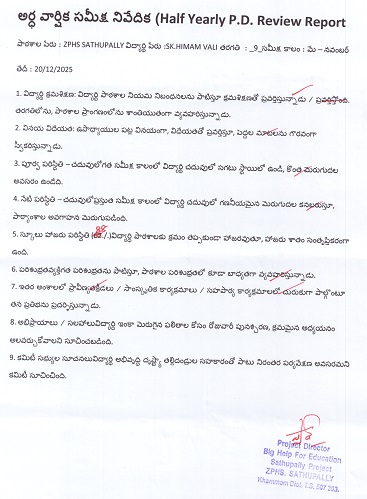 అర్ధ వార్షిక సమీక్ష నివేదిక (Half Yearly P.D. Review Report
పాఠశాల పేరు : ZPHS SATHUPALLY విద్యార్థి పేరు :SK.HIMAM VALI తరగతి : _9_సమీక్ష కాలం : మే – నవంబర్
తేదీ : 20/12/2025
1. విద్యార్థి క్రమశిక్షణ: విద్యార్థి పాఠశాల నియమ నిబంధనలను పాటిస్తూ క్రమశిక్షణతో ప్రవర్తిస్తున్నాడు / ప్రవర్తిస్తోంది.
తరగతిలోను, పాఠశాల ప్రాంగణంలోను శాంతియుతంగా వ్యవహరిస్తున్నాడు.
2. వినయ విధేయత: ఉపాధ్యాయుల పట్ల వినయంగా, విధేయతతో ప్రవర్తిస్తూ, పెద్దల మాటలను గౌరవంగా
స్వీకరిస్తున్నాడు.
3. పూర్వ పరిస్థితి – చదువులోగత సమీక్ష కాలంలో విద్యార్థి చదువులో సగటు స్థాయిలో ఉండి, కొంత మెరుగుదల
అవసరం ఉండేది.
4. నేటి పరిస్థితి – చదువులోప్రస్తుత సమీక్ష కాలంలో విద్యార్థి చదువులో గణనీయమైన మెరుగుదల కనబరుస్తూ,
పాఠ్యాంశాల అవగాహన మెరుగుపడింది.
5. స్కూలు హాజరు పరిస్థితి ( /.)విద్యార్థి పాఠశాలకు క్రమం తప్పకుండా హాజరవుతూ, హాజరు శాతం సంతృప్తికరంగా
ఉంది.
6. పరిశుభ్రతవ్యక్తిగత పరిశుభ్రతను పాటిస్తూ, పాఠశాల పరిశుభ్రతలో కూడా బాధ్యతగా వ్యవహరిస్తున్నాడు.
7. ఇతర అంశాలలో ప్రావీణ్యతక్రీడలు / సాంస్కృతిక కార్యక్రమాలు / సహపాఠ్య కార్యక్రమాలలో చురుకుగా పాల్గొంటూ
తన ప్రతిభను ప్రదర్శిస్తున్నాడు.
8. అభిప్రాయాలు / సలహాలువిద్యార్థి ఇంకా మెరుగైన ఫలితాల కోసం రోజువారీ పునశ్చరణ, క్రమమైన అధ్యయనం
అలవర్చుకోవాలని సూచించబడింది.
9. కమిటీ సభ్యుల సూచనలువిద్యార్థి అభివృద్ధి దృష్ట్యా తల్లిదండ్రుల సహకారంతో పాటు నిరంతర పర్యవేక్షణ అవసరమని
కమిటీ సూచించింది.
Project Director
Big Help For Education
Sathupally Project
ZPHS. SATHUPALLY
Khammam Dist. T.S. 507 303.